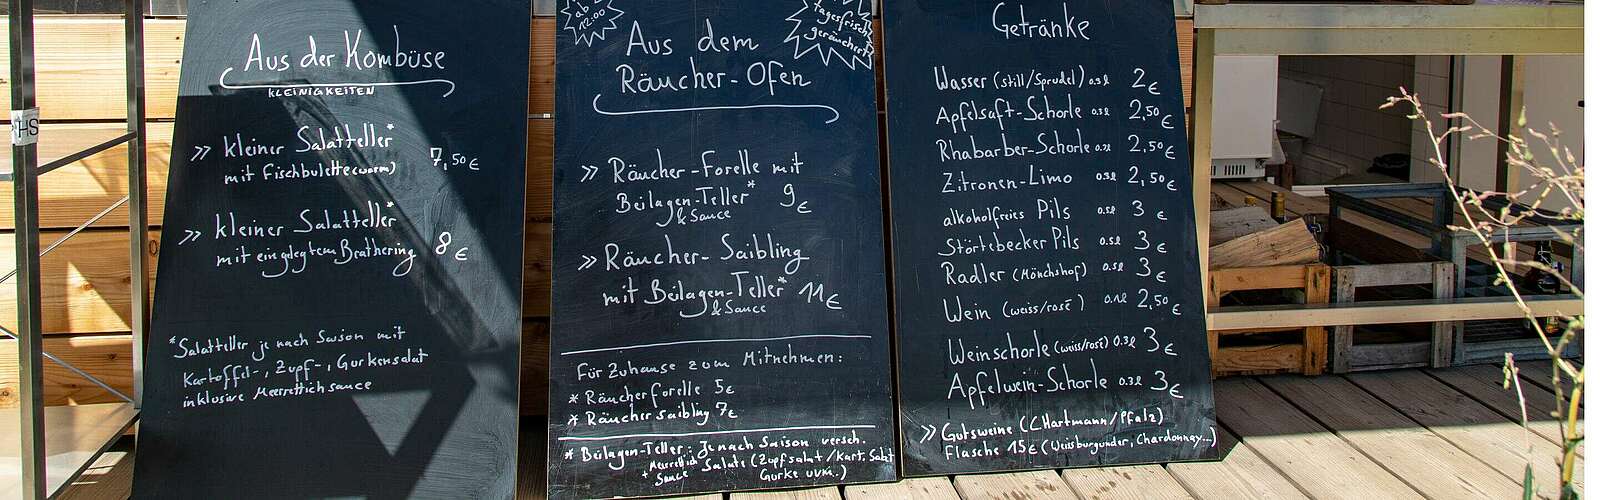 HS
Aus der Kombüse
KLEINIGKEITEN
» kleiner Salatteller*
mit Fischbulette (warm) 7,50 €
» kleiner Salatteller*
mit eingelegtem Brathering 8 €
*Salatteller je nach Saison mit
Kartoffel-, Zupf-, Gurkensalat
inklusive Meerrettichsauce
ab
12:00
tagesfrisch
geräuchert!
Aus dem
Räucher-Ofen
» Räucher-Forelle mit
Beilagen-Teller* 9 €
& Sauce
» Räucher-Saibling
mit Beilagen-Teller* 11 €
& Sauce
Für Zuhause zum Mitnehmen:
* Räucherforelle 5 €
* Räuchersaibling 7 €
* Beilagen-Teller: Je nach Saison versch.
+ Meerrettich Salate (Zupfsalat/Kart. Salat
Sauce Gurke uvm.)
Getränke
Wasser (still/Sprudel) 0.3l 2 €
Apfelsaft-Schorle 0.3l 2,50 €
Rhabarber-Schorle 0.3l 2,50 €
Zitronen-Limo 0.3l 2,50 €
alkoholfreies Pils 0.5l 3 €
Störtebecker Pils 0.5l 3 €
Radler (Mönchshof) 0.5l 3 €
Wein (weiss/rosé) 0.1l 2,50 €
Weinschorle (weiss/rosé) 0.3l 3 €
Apfelwein-Schorle 0.3l 3 €
» Gutsweine (L. Hartmann/Pfalz)
Flasche 15 € (Weissburgunder, Chardonnay...)